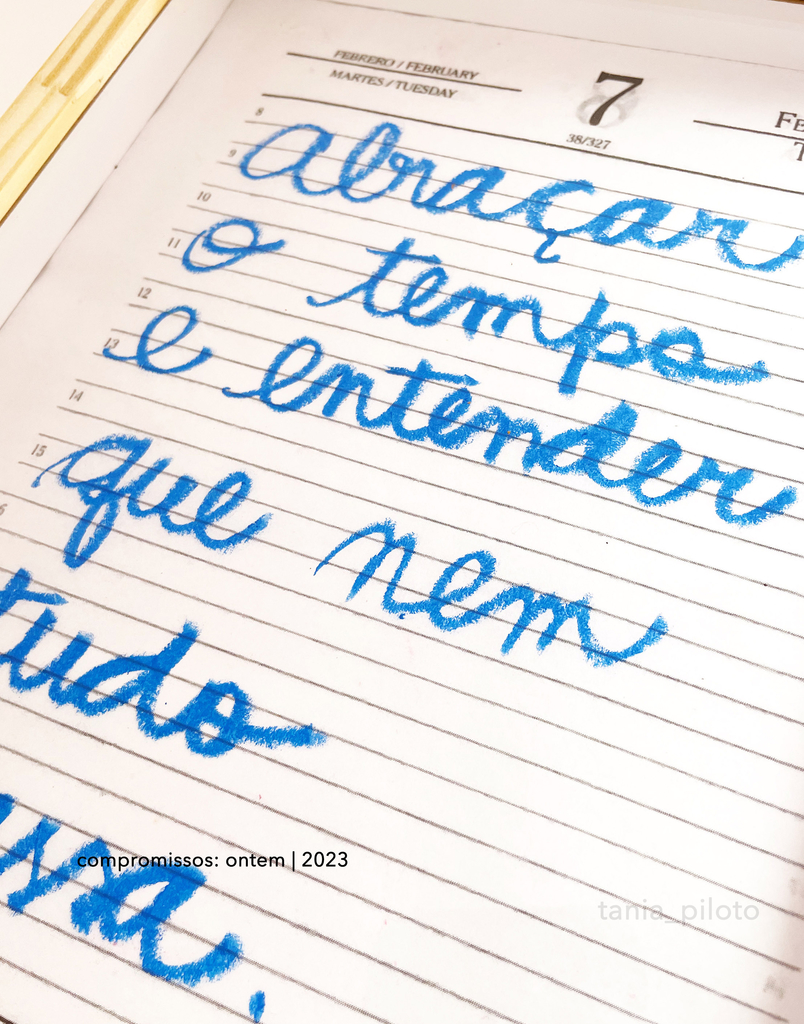 FEBRERO / FEBRUARY
MARTES / TUESDAY
7
38/327
8
abraçar
9
10
o tempo
11
12
e entender
13
14
que nem
15
tudo
compromissos: ontem | 2023
tania_piloto